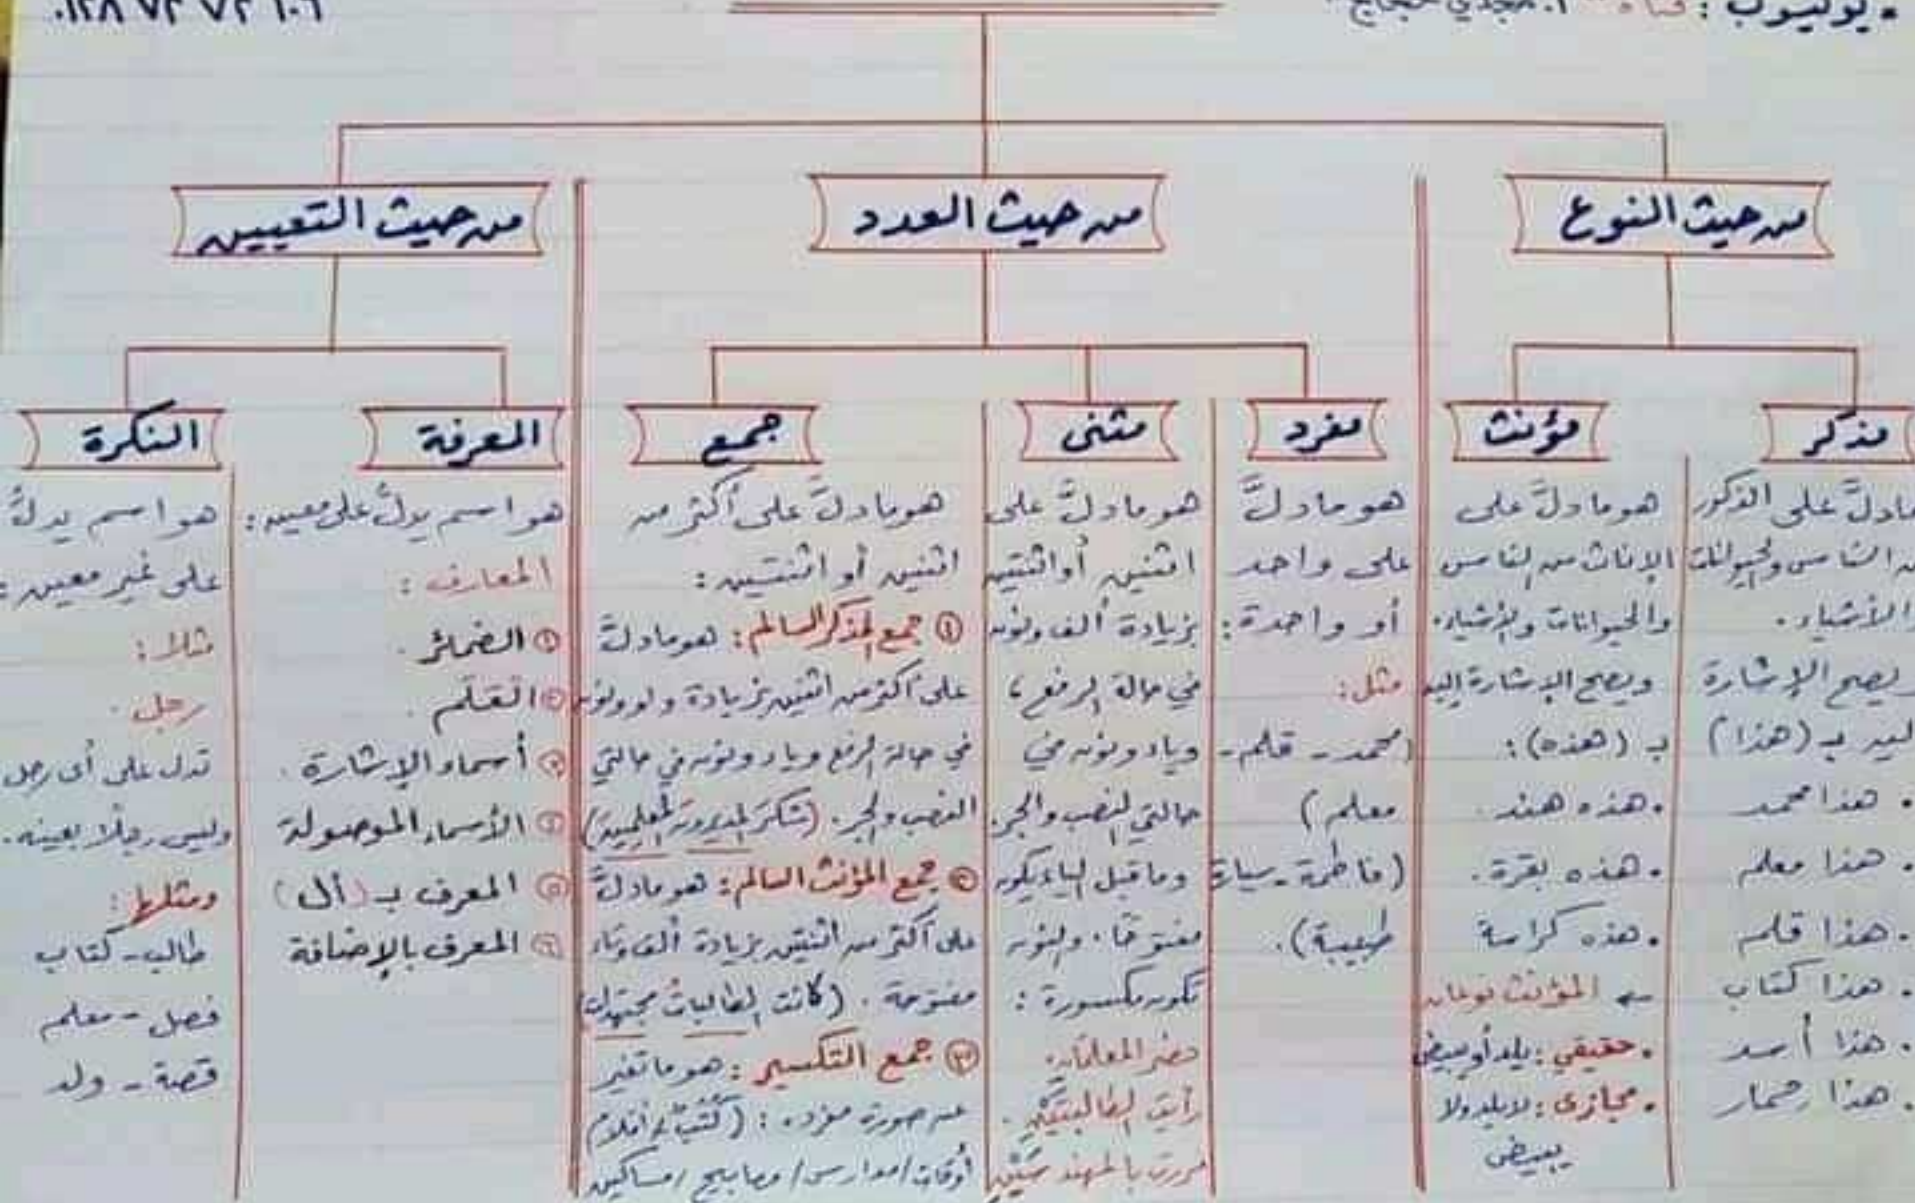 • يوتيوب : قناة أ. مجدي
٠١٢٨ ٧٢ ٧٢ ٦٠٦
من حيث النوع
من حيث العدد
من حيث التعيين
مذكر
مادلَّ على الذكور
من الناس والحيوانات
والأشياء.
ويصح الإشارة
إليه بـ (هذا)
• هذا محمد
• هذا معلم
• هذا قلم
• هذا كتاب
• هذا أسد
• هذا حمار
مؤنث
هو مادلَّ على
الإناث من الناس
والحيوانات والأشياء.
ويصح الإشارة إليه
بـ (هذه):
• هذه هند.
• هذه بقرة.
• هذه كراسة
المؤنث نوعان
• حقيقي: يلد أو يبيض
• مجازى: لا يلد ولا
يبيض
مفرد
هو مادلَّ
على واحد
أو واحدة:
مثل:
(محمد - قلم -
معلم)
(فاطمة - سيارة
طبيبة).
مثنى
هو مادلَّ على
اثنين أو اثنتين
بزيادة ألف ونون
في حالة الرفع،
وياء ونون في
حالتي النصب والجر.
وما قبل الياء يكون
مفتوحًا. والنون
تكون مكسورة:
حضر المعلمان.
رأيت الطالبتَيْنِ.
مررت بالمهندسَيْنِ
جمع
هو مادلَّ على أكثر من
اثنين أو اثنتين:
① جمع المذكر السالم: هو مادلَّ
على أكثر من اثنين بزيادة واو ونون
في حالة الرفع وياء ونون في حالتي
النصب والجر. (شكرَ المديرون المعلمين)
② جمع المؤنث السالم: هو مادلَّ
على أكثر من اثنتين بزيادة ألف وتاء
مفتوحة. (كانت الطالباتُ مجتهداتٍ)
③ جمع التكسير: هو ما تغير
عن صورة مفرده: (كُتُبٌ / أقلام
أوقات / مدارس / مصابيح / مساكين
المعرفة
هو اسم يدلُّ على معين:
المعارف:
① الضمائر.
② العَلَم.
③ أسماء الإشارة.
④ الأسماء الموصولة
⑤ المعرف بـ (أل)
⑥ المعرف بالإضافة
النكرة
هو اسم يدلُّ
على غير معين:
مثلا:
رجل.
تدل على أى رجل
وليس رجلًا بعينه.
ومثلها:
طالب - كتاب
فصل - معلم
قصة - ولد